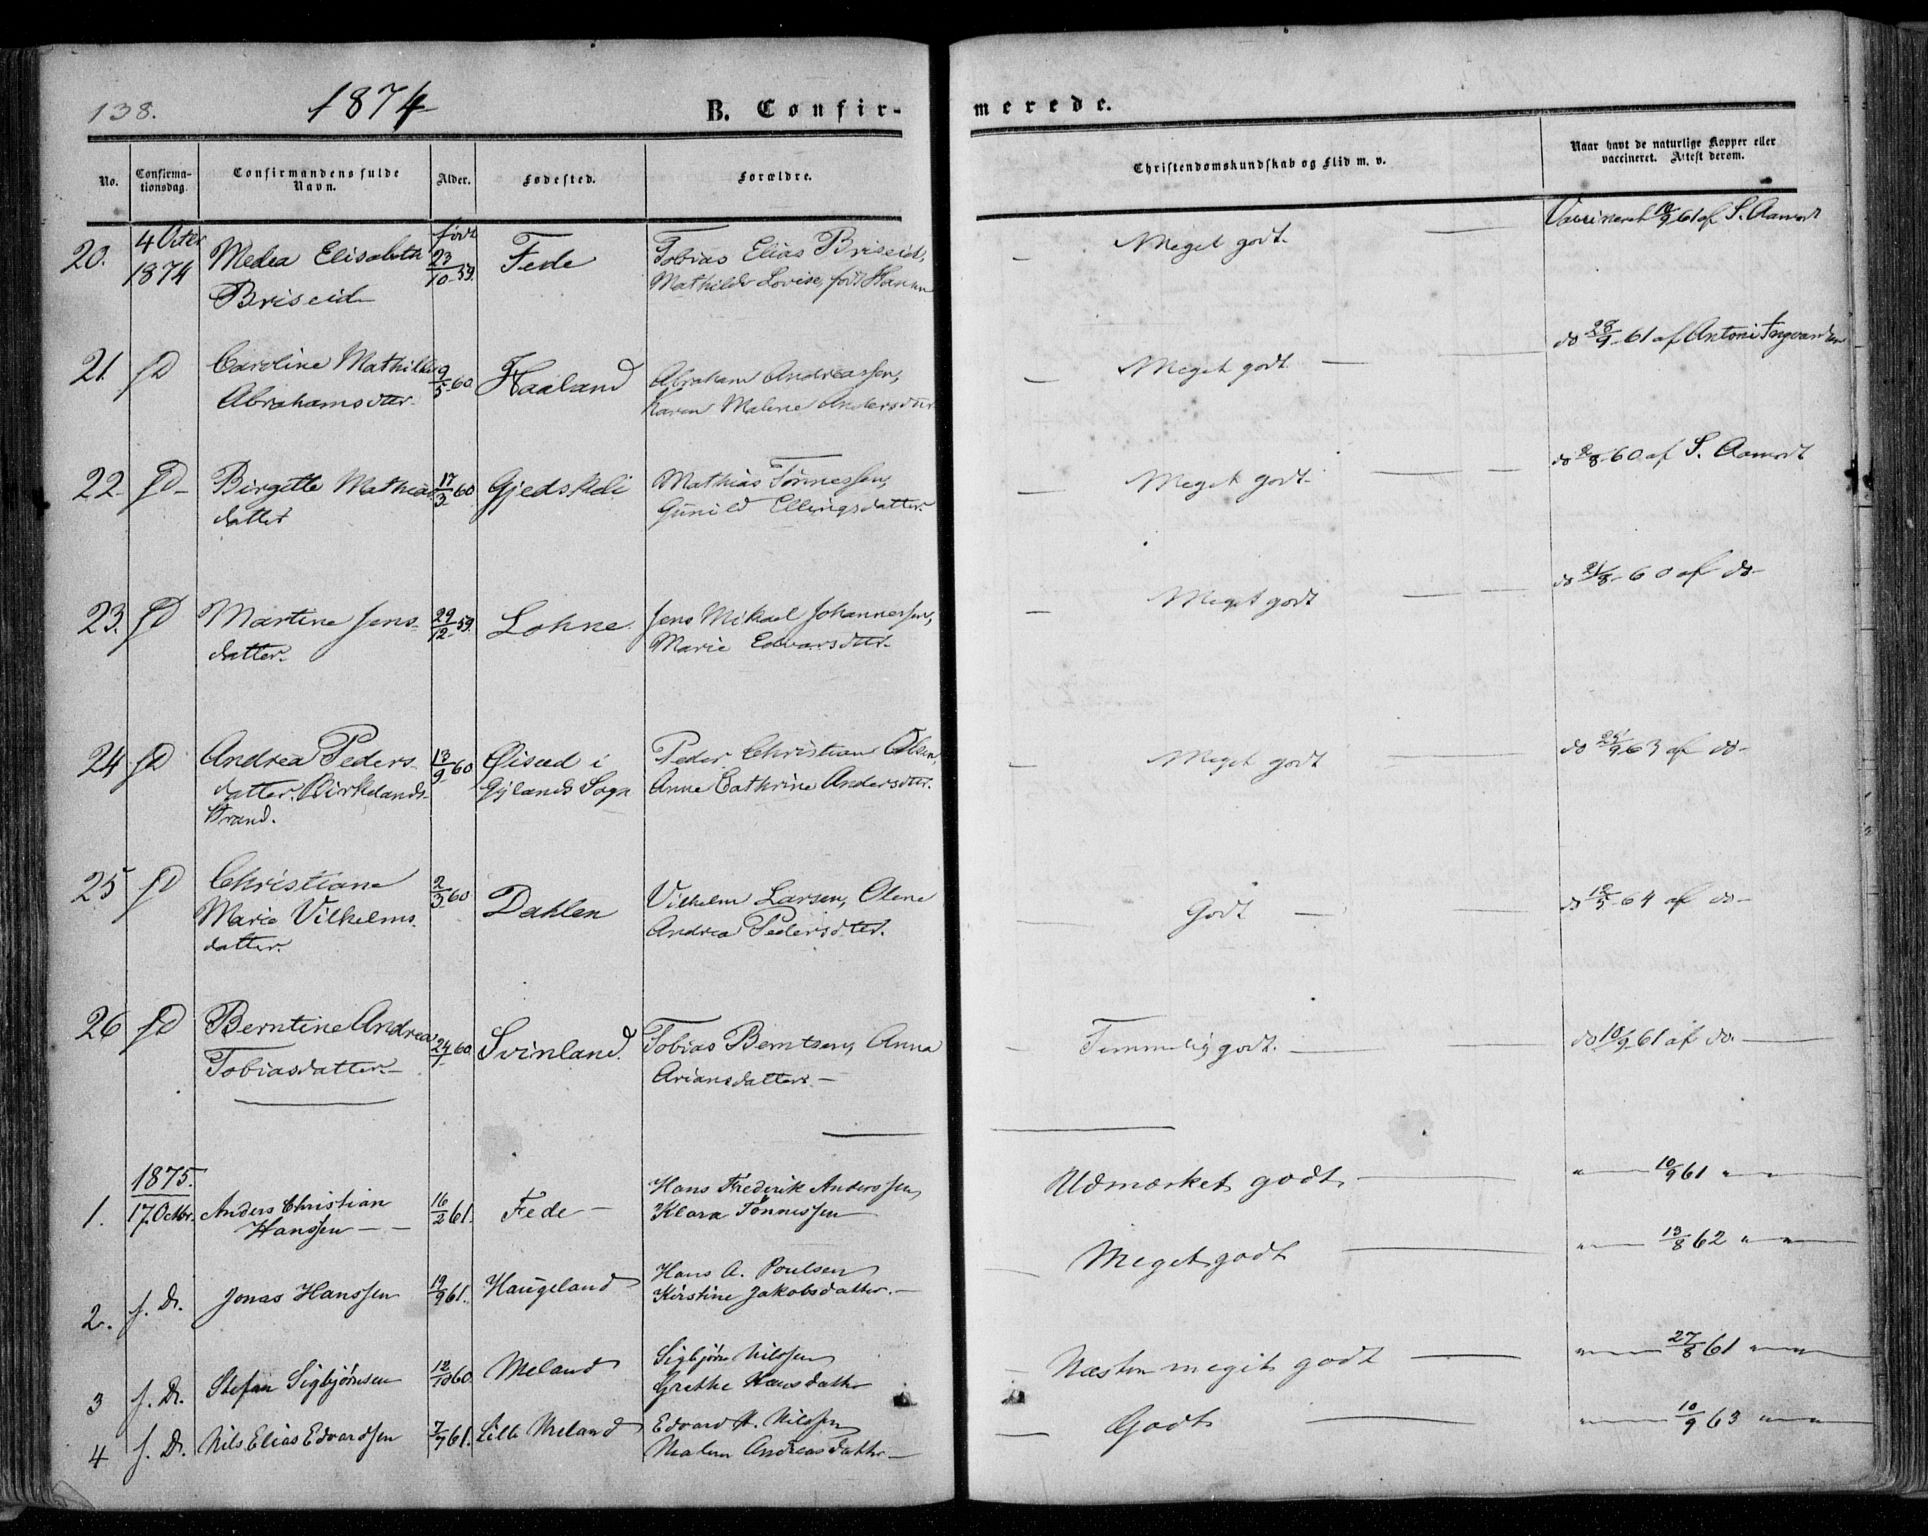 138.
1874
B. Confir-
merede.
No.
Confirma-
tionsdag.
Confirmandens fulde
Navn.
Alder.
Fødested.
Forældre.
Christendomskundskab og Flid m. v.
Naar havt de naturlige Kopper eller
vaccineret. Attest derom.
20.
4 Octer
1874
Medea Elisabeth
Briseid
født
23/10 59.
Fede
Tobias Elias Briseid,
Mathilde Lovise, født
Meget godt.
Vaccineret 10/9 61 af S. Aamodt
21.
f D
Caroline Mathilde
Abrahamsdtr.
9/5 60.
Haaland
Abraham Andreassen,
Karen Malene Andersdtr
Meget godt
do 28/9 61 af Antoni Ingvardsen
22.
f D
Birgitte Mathias
datter
17/3 60
Gjedskdi
Mathias Tønnessen,
Gunild Ellingsdatter.
Meget godt.
do 8/8 60 af S. Aamodt
23.
f D
Martine Jens-
datter.
29/12 59.
Lohne.
Jens Mikael Johannessen,
Marie Edvarsdtr.
Meget godt
do 21/8 60 af do
24
f D
Andrea Peders-
datter. Birkelands-
strand.
13/9 60
Øisæd i
Gylands Sogn
Peder Christian Olsen,
Anne Cathrine Andersdtr.
Meget godt
do 25/9 63 af do
25
f D
Christiane
Marie Vilhelms-
datter.
2/3 60
Dahlen
Vilhelm Larsen, Olene
Andrea Pedersdtr.
Godt
do 12/5 64 af do
26
f D
Berntine Andrea
Tobiasdatter.
24/7 60
Svinland.
Tobias Berntsen, Anna
Ariansdatter.
Temmelig godt.
do 10/9 61 af do.
1875.
1.
17. Octbr.
Anders Christian
Hanssen
16/2 61.
Fede
Hans Frederik Anderssen,
Klara Tønnessen
Udmærket godt.
" 10/9 61 "
2.
f. D.
Jonas Hanssen
19/9 61.
Haugeland
Hans A. Poulsen
Kirstine Jakobsdatter.
Meget godt
" 13/8 62 " "
3
f. D.
Stefan Sigbjørnsen
12/10 60.
Meland
Sigbjørn Nilssen
Grethe Hansdatter
Næsten meget godt
" 27/8 61 " "
4
f. D.
Nils Elias Edvardsen
7/7 61.
Lille Meland
Edvard N. Nilssen
Malen Andreasdatter
Godt
" 10/9 63 " "